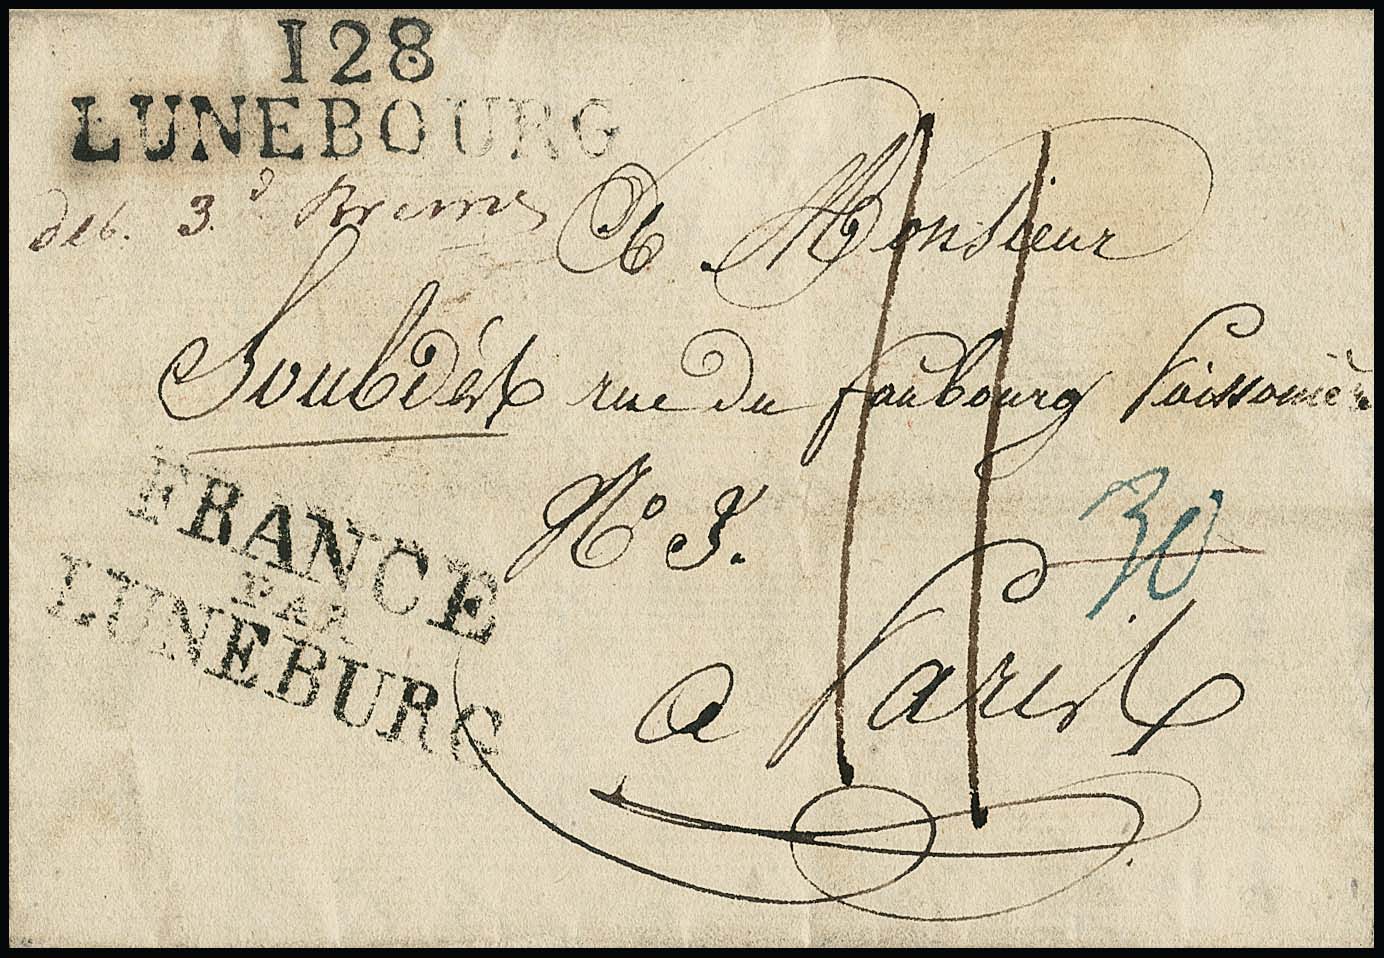 128
LUNEBOURG
deb. 3.d Breme
A Monsieur
Soubdès rue du faubourg Poissonièr
N° 3.
30
a Paris
FRANCE
PAR
LUNEBURG